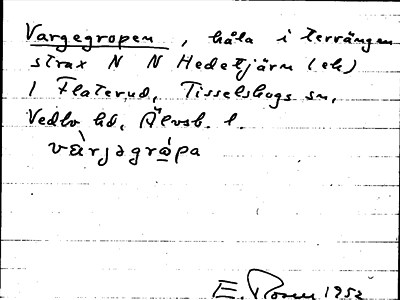 Vargegropen, håla i terrängen
strax N N Hedetjärn (ek)
i Flaterud, Tisselskogs sn,
Vedbo hd, Älvsb. l.
vàrjəgrápa
E. Rosen 1952